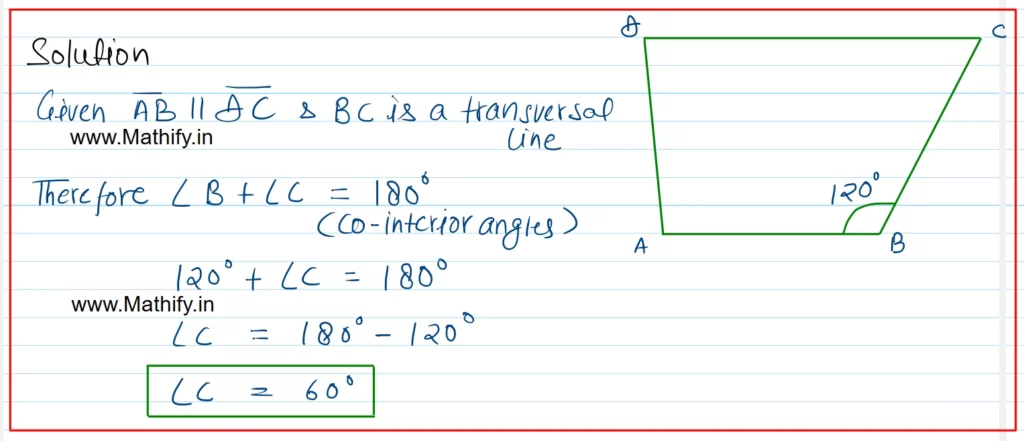 Solution
Given AB || DC & BC is a transversal
line
www.Mathify.in
Therefore ∠B + ∠C = 180°
(Co-interior angles)
120° + ∠C = 180°
www.Mathify.in
∠C = 180° - 120°
∠C = 60°
D
C
120°
A
B